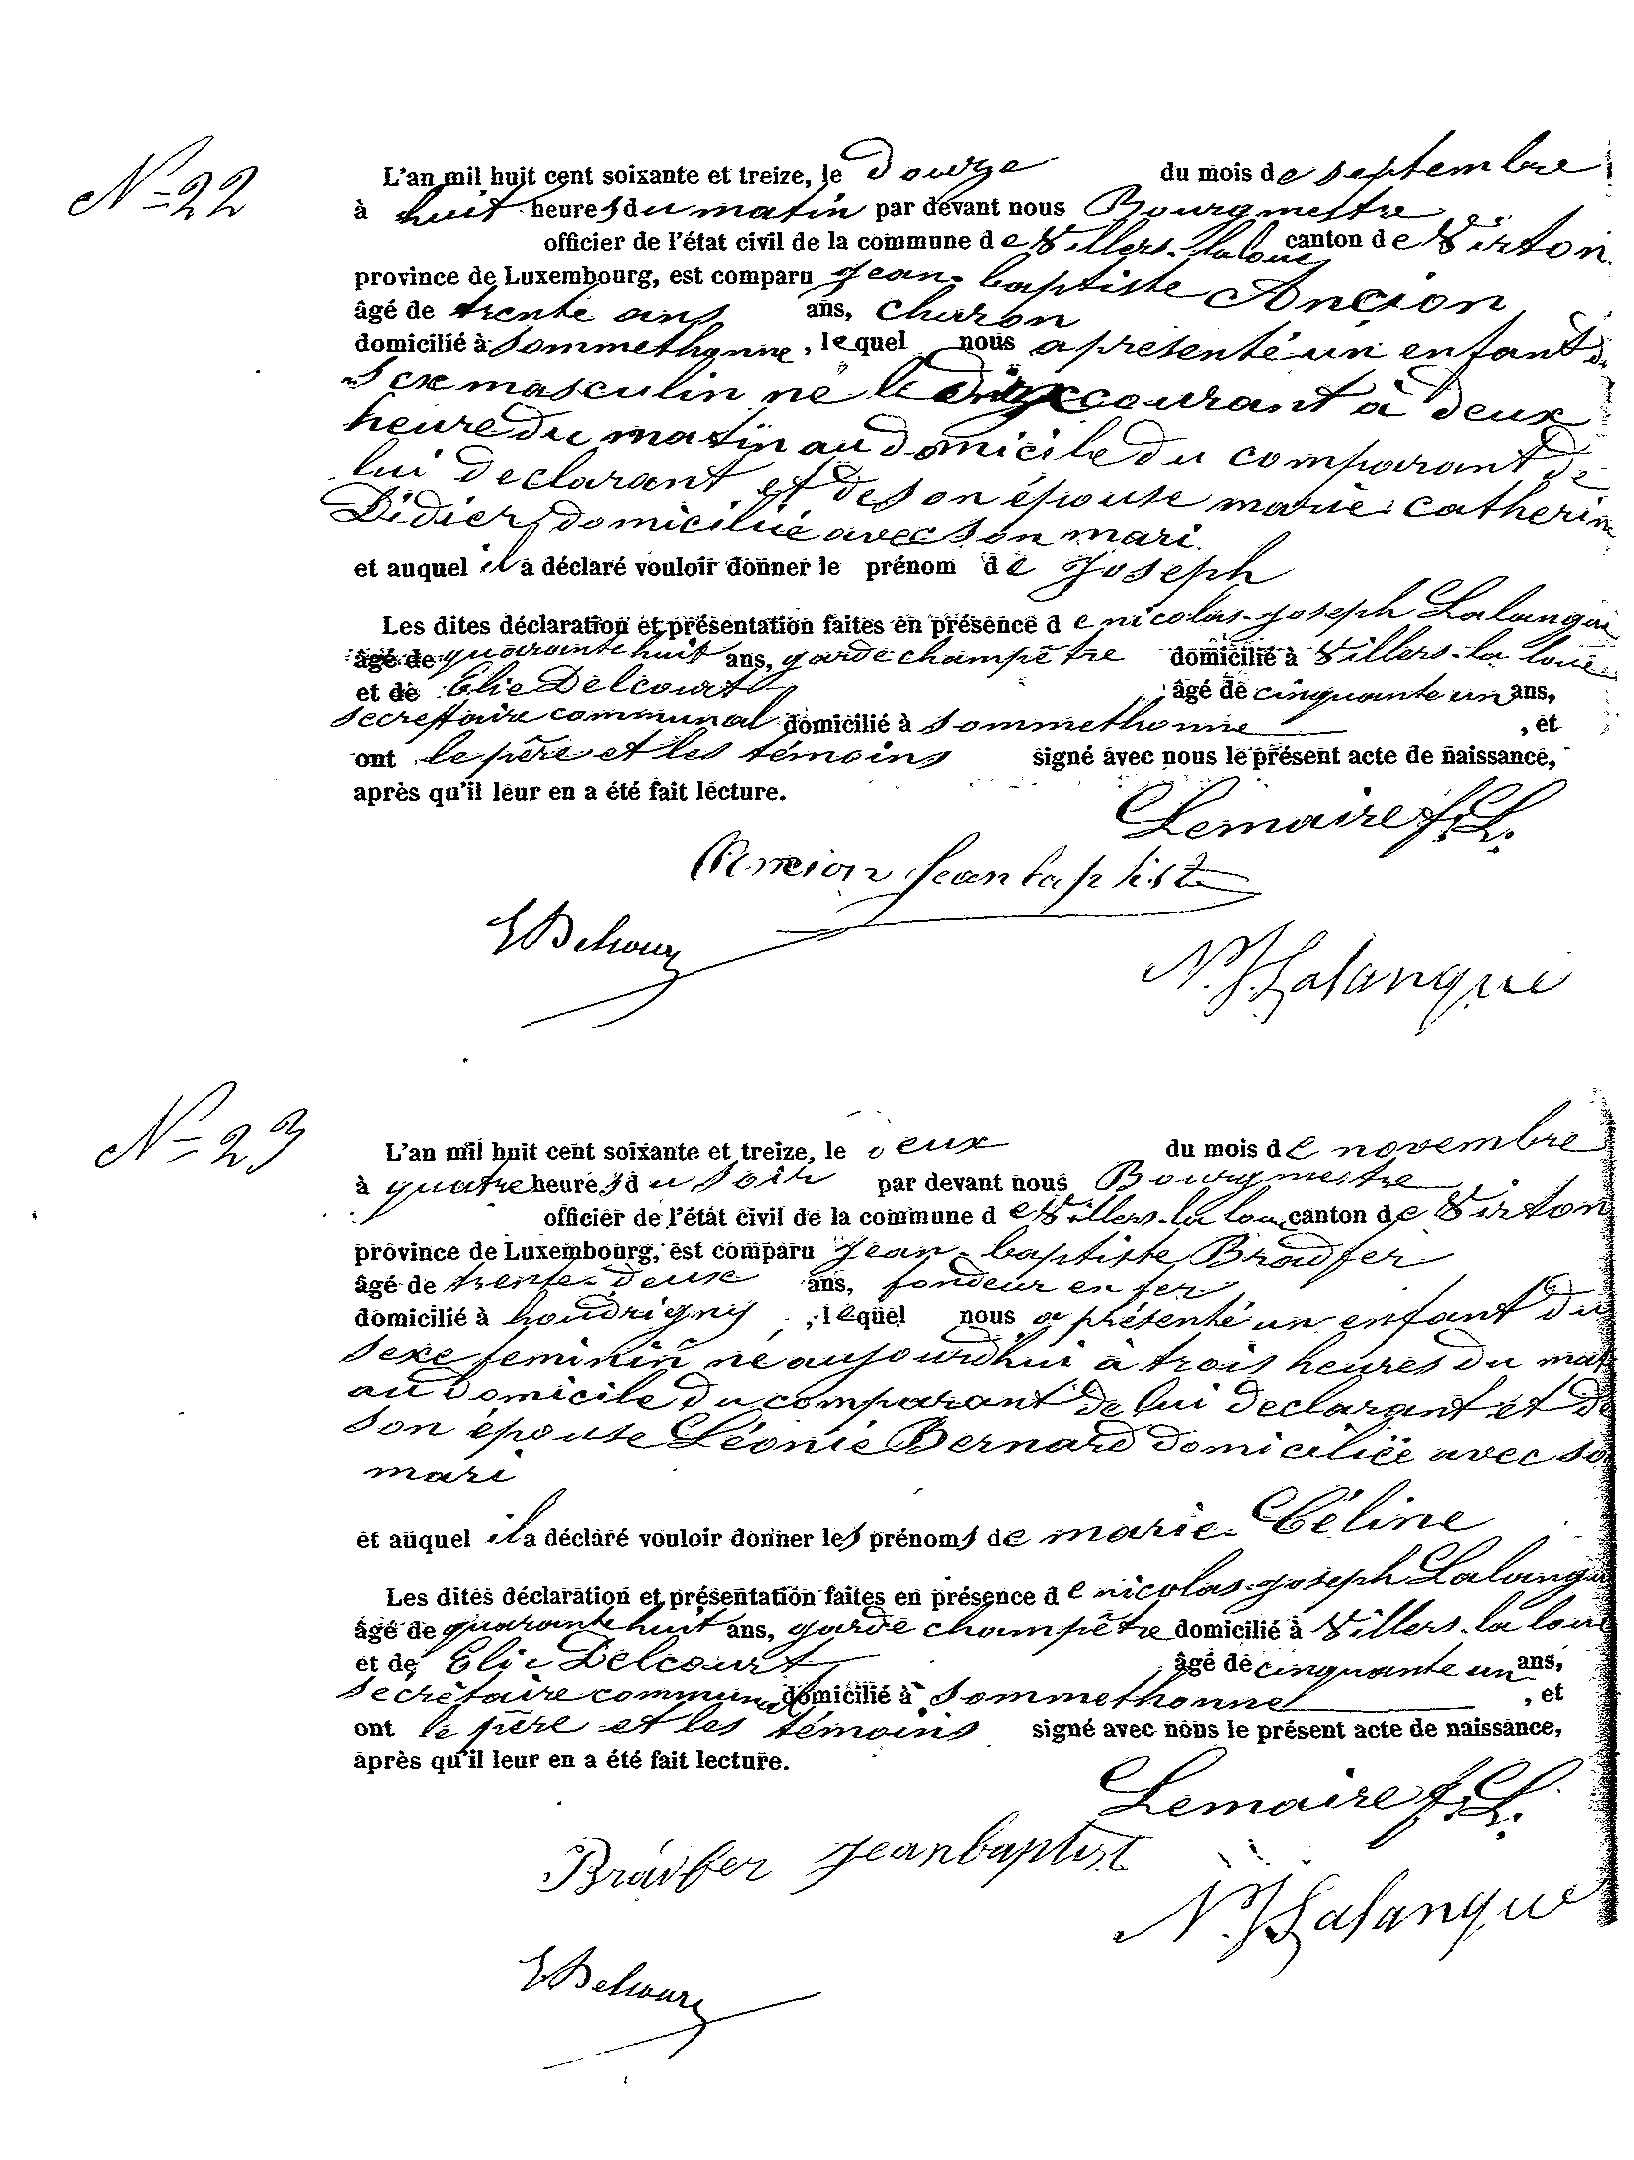 N° 22
L'an mil huit cent soixante et treize, le douze du mois de septembre
à huit heures du matin par devant nous Bourgmestre
officier de l'état civil de la commune de Villers-la loue canton de Virton
province de Luxembourg, est comparu Jean-baptiste Ancion
âgé de trente ans ans, charron
domicilié à Sommethonne, lequel nous a présenté un enfant du
sexe masculin né le courant à deux
heure du matin au domicile du comparant de
lui declarant et de son épouse marie catherine
Didier, domiciliée avec son mari
et auquel il a déclaré vouloir donner le prénom de Joseph
Les dites déclaration et présentation faites en présence de nicolas-joseph Lalangue
âgé de quarante huit ans, garde champêtre domicilié à Villers-la loue
et de Elie Delcourt âgé de cinquante un ans,
secretaire communal domicilié à Sommethonne, et
ont le père et les témoins signé avec nous le présent acte de naissance,
après qu'il leur en a été fait lecture.
Lemaire f. L.
Ancion Jean baptiste
E Delcourt
N. J. Lalangue
N° 23
L'an mil huit cent soixante et treize, le deux du mois de novembre
à quatre heures du soir par devant nous Bourgmestre
officier de l'état civil de la commune de Villers-la loue canton de Virton
province de Luxembourg, est comparu Jean-baptiste Bradfer
âgé de trente-deux ans, fondeur en fer
domicilié à houdrigny, lequel nous a présenté un enfant du
sexe feminin né aujourdhui à trois heures du mat
au domicile du comparant de lui declarant et de
son épouse Léonie Bernard domiciliée avec so
mari
et auquel il a déclaré vouloir donner les prénoms de marie-Céline
Les dites déclaration et présentation faites en présence de nicolas-joseph Lalangue
âgé de quarante huit ans, garde champêtre domicilié à Villers-la loue
et de Elie Delcourt âgé de cinquante un ans,
secrétaire communal domicilié à Sommethonne, et
ont le père et les témoins signé avec nous le présent acte de naissance,
après qu'il leur en a été fait lecture.
Lemaire f. L.
Bradfer Jean baptist
N. J. Lalangue
E Delcourt